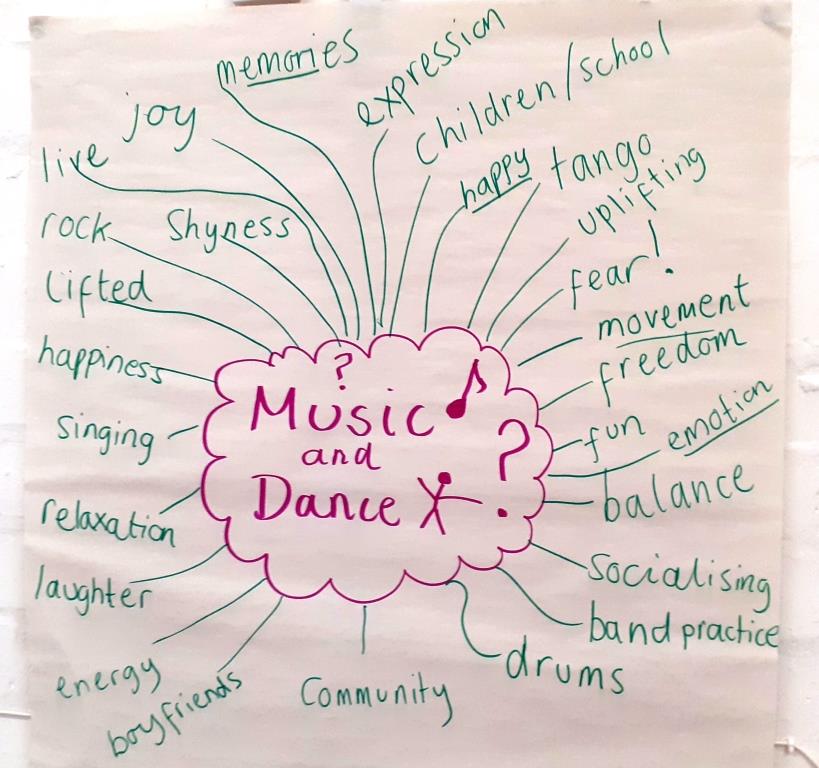 memories
expression
children/school
joy
live
happy
tango
uplifting
rock
Shyness
fear!
Lifted
movement
happiness
freedom
singing
fun
emotion
relaxation
balance
laughter
socialising
energy
band practice
boyfriends
Community
drums
?
Music
and
Dance
?